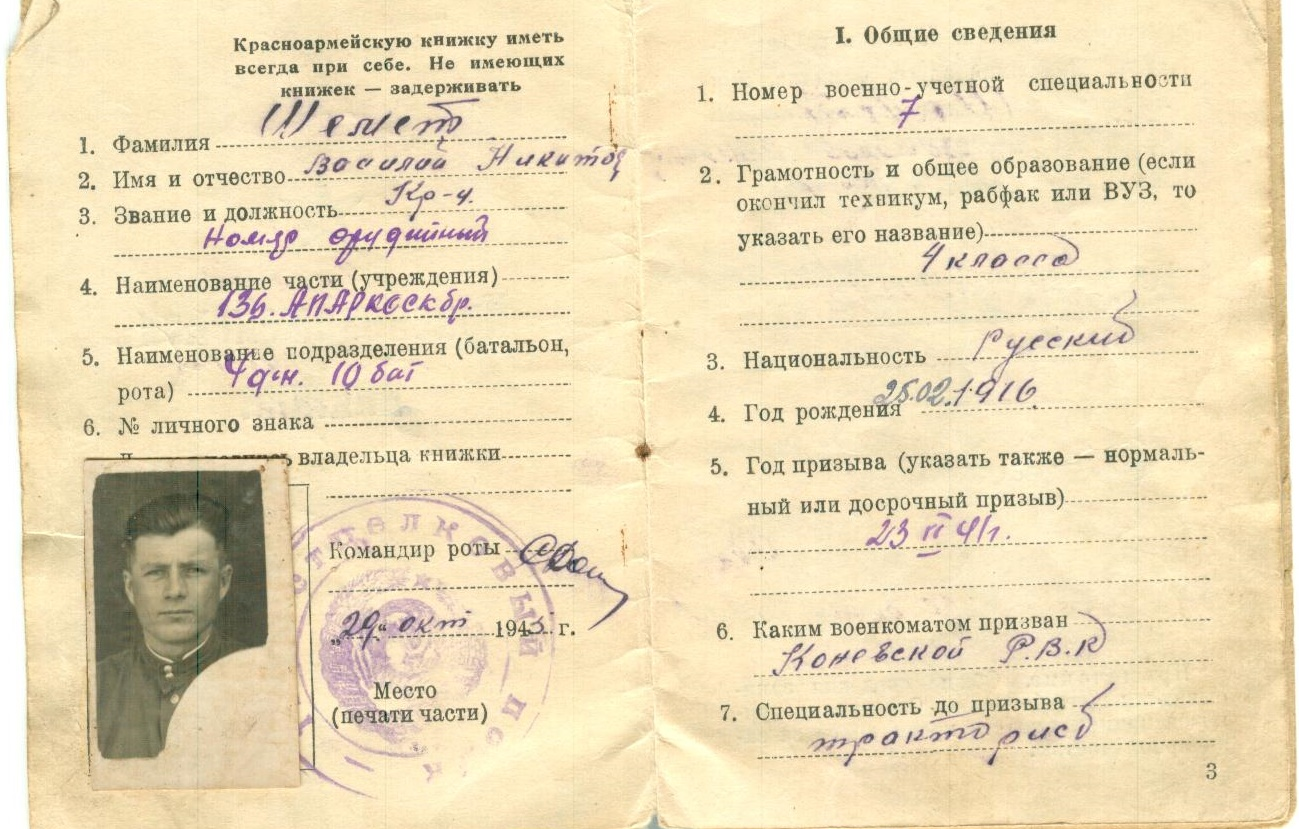 Красноармейскую книжку иметь
всегда при себе. Не имеющих
книжек — задерживать
1. Фамилия Шемет
2. Имя и отчество Василий Никитов
3. Звание и должность Кр-ц
Номер орудийный
4. Наименование части (учреждения)
5. Наименование подразделения (батальон,
рота) 4 д-н. 10 бат
6. № личного знака
владельца книжки
Командир роты
„29“ окт 1943 г.
Место
(печати части)
стрелковый полк
I. Общие сведения
1. Номер военно-учетной специальности
7
2. Грамотность и общее образование (если
окончил техникум, рабфак или ВУЗ, то
указать его название)
4 класса
3. Национальность Русский
4. Год рождения 25.02.1916
5. Год призыва (указать также — нормаль-
ный или досрочный призыв)
23 II 41г.
6. Каким военкоматом призван
Коневской Р.В.К
7. Специальность до призыва
тракторист
3